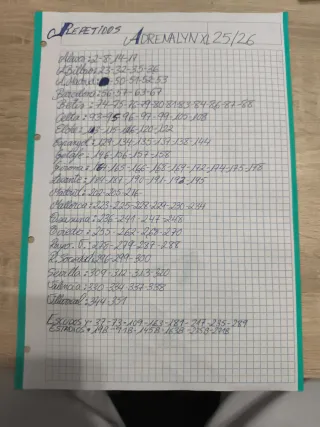 REPETIDOS
ADRENALYN XL 25/26
Alaves: 2-8-14-17
A.Bilbao: 23-32-35-36
A.Madrid: 50-51-52-53
Barcelona: 56-57-63-67
Betis: 74-75-76-79-80-81-83-84-86-87-88
Celta: 93-95-96-97-99-105-108
Elche: 120-122
Espanyol: 129-134-135-137-138-144
Getafe: 146-156-157-158
Girona: 165-166-168-169-172-174-175-178
Levante: 187-190-191-192-195
Madrid: 202-205-216
Mallorca: 223-225-228-229-230-234
Osasuna: 236-241-247-248
Oviedo: 255-262-269-270
Rayo V.: 278-279-287-288
R.Sociedad: 296-299-300
Sevilla: 309-312-313-320
Valencia: 330-334-337-338
Villarreal: 344-351
Escudos: 37-73-109-163-181-217-235-289
ESTADIOS: 19B-91B-145B-163B-235B-271B